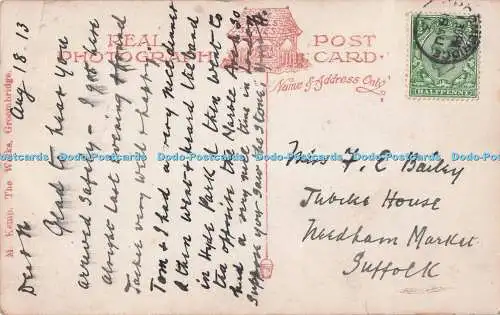 Aug 18 13
Dear M Glad to hear you
arrived safely - I got here
alright last evening & found
Jackie very well & happy.
Tom & I had a very nice dinner
& then went & heard the band
in Hyde Park & then went to
tea opposite the Marble Arch. So
had a very nice time in London
Suppose you saw the Stones,
REAL PHOTOGRAPH
POST CARD
Name & Address Only
HALFPENNY
Miss F. E Bailey
Jubilee House
Needham Market
Suffolk
M. Kemp, The Works, Groombridge.
Dodo-Postcards Dodo-Postcards Dodo-Postcards Dodo-Postcards